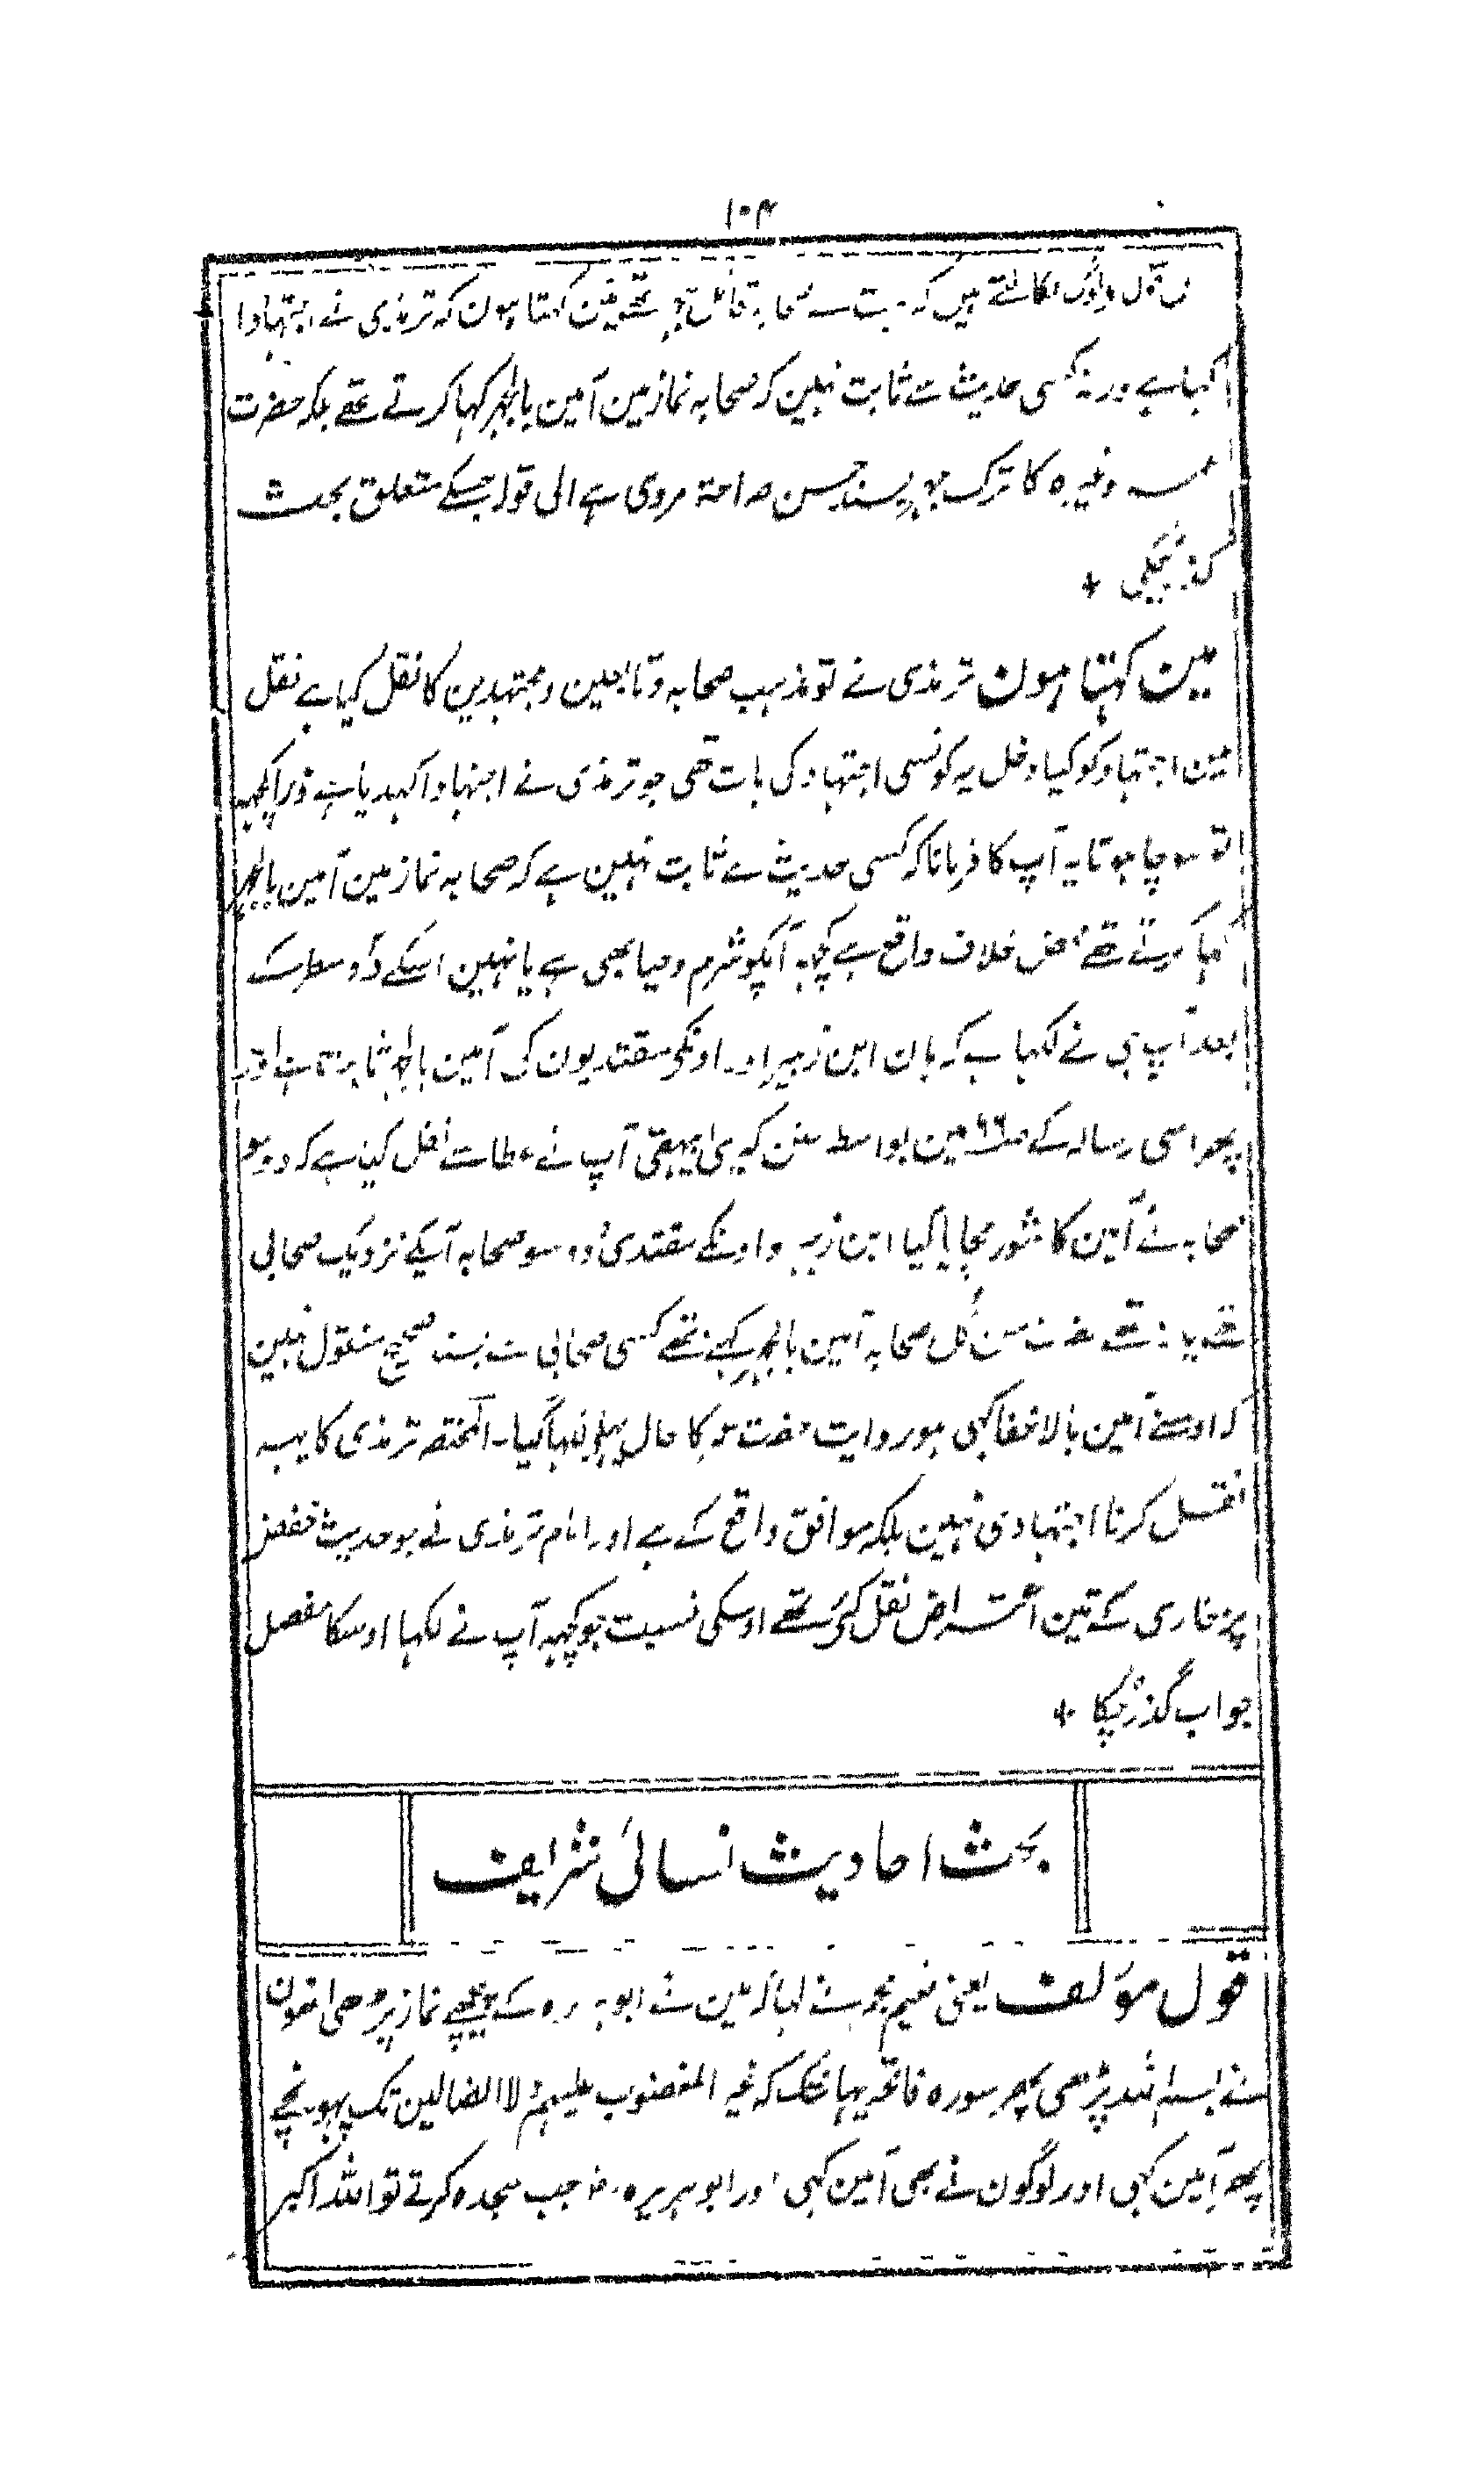 ۱۰۴
نکالتے ہیں کہ بہت سے صحابہ قائل تھے میں کہتا ہون کہ ترمذی نے اجتہادا
کہا ہے ورنہ کسی حدیث سے ثابت نہین کہ صحابہ نماز مین آمین بالجہر کہا کرتے تھے بلکہ حضرت
عمر وغیرہ کا ترک جہر بسند حسن صراحۃ مروی ہے الی قولہ جسکے متعلق بحث
گذر چکی +
مین کہتا ہون ترمذی نے تو مذہب صحابہ وتابعین ومجتہدین کا نقل کیا ہے نقل
مین اجتہاد کو کیا دخل یہ کونسی اجتہاد کی بات تھی جو ترمذی نے اجتہادا کہدیا ہے ذرا کچھہ
تو سوچا ہوتا یہ آپ کا فرمانا کہ کسی حدیث سے ثابت نہین ہے کہ صحابہ نماز مین آمین بالجہر
کہا کرتے تھے محض خلاف واقع ہے کچہہ آپکو شرم وحیا بھی ہے یا نہین اسکے دو سطر کے
بعد آپ ہی نے لکہا ہے کہ ہان ابن زبیر اور اونکی مقتدیون کی آمین بالجہر ثابت ہے اور
پھر اسی رسالہ کے مین بواسطہ سنن کبریٰ بیہقی آپ نے عطا سے نقل کیا ہے کہ دو سو
صحابہ نے آمین کا شور مچایا کیا ابن زبیر و اونکے مقتدی دو سو صحابہ آپکے نزدیک صحابی
تھے یا نہ تھے کل صحابہ آمین بالجہر کہتے تھے کسی صحابی سے بسند صحیح منقول نہین
کہ اوسنے آمین بالاخفا کہی ہو روایت حضرت عمر کا حال پہلے لکہا گیا۔ المختصر ترمذی کا یہہ
نقل کرنا اجتہادی نہین بلکہ موافق واقع کے ہے اور امام ترمذی نے جو حدیث خفض
پر بخاری کے تین اعتراض نقل کئے تھے اوسکی نسبت جو کچہہ آپ نے لکہا اوسکا مفصل
جواب گذر چکا +
بحث احادیث نسائی شریف
قول مؤلف یعنی نعیم مجمر نے کہا کہ مین نے ابوہریرہ کے پیچھے نماز پڑھی انہون
نے بسم اللہ پڑھی پھر سورہ فاتحہ یہانتک کہ غیر المغضوب علیہم ولا الضالین تک پہونچے
پھر آمین کہی اور لوگون نے بھی آمین کہی اور ابوہریرہ رض جب سجدہ کرتے تو اللہ اکبر